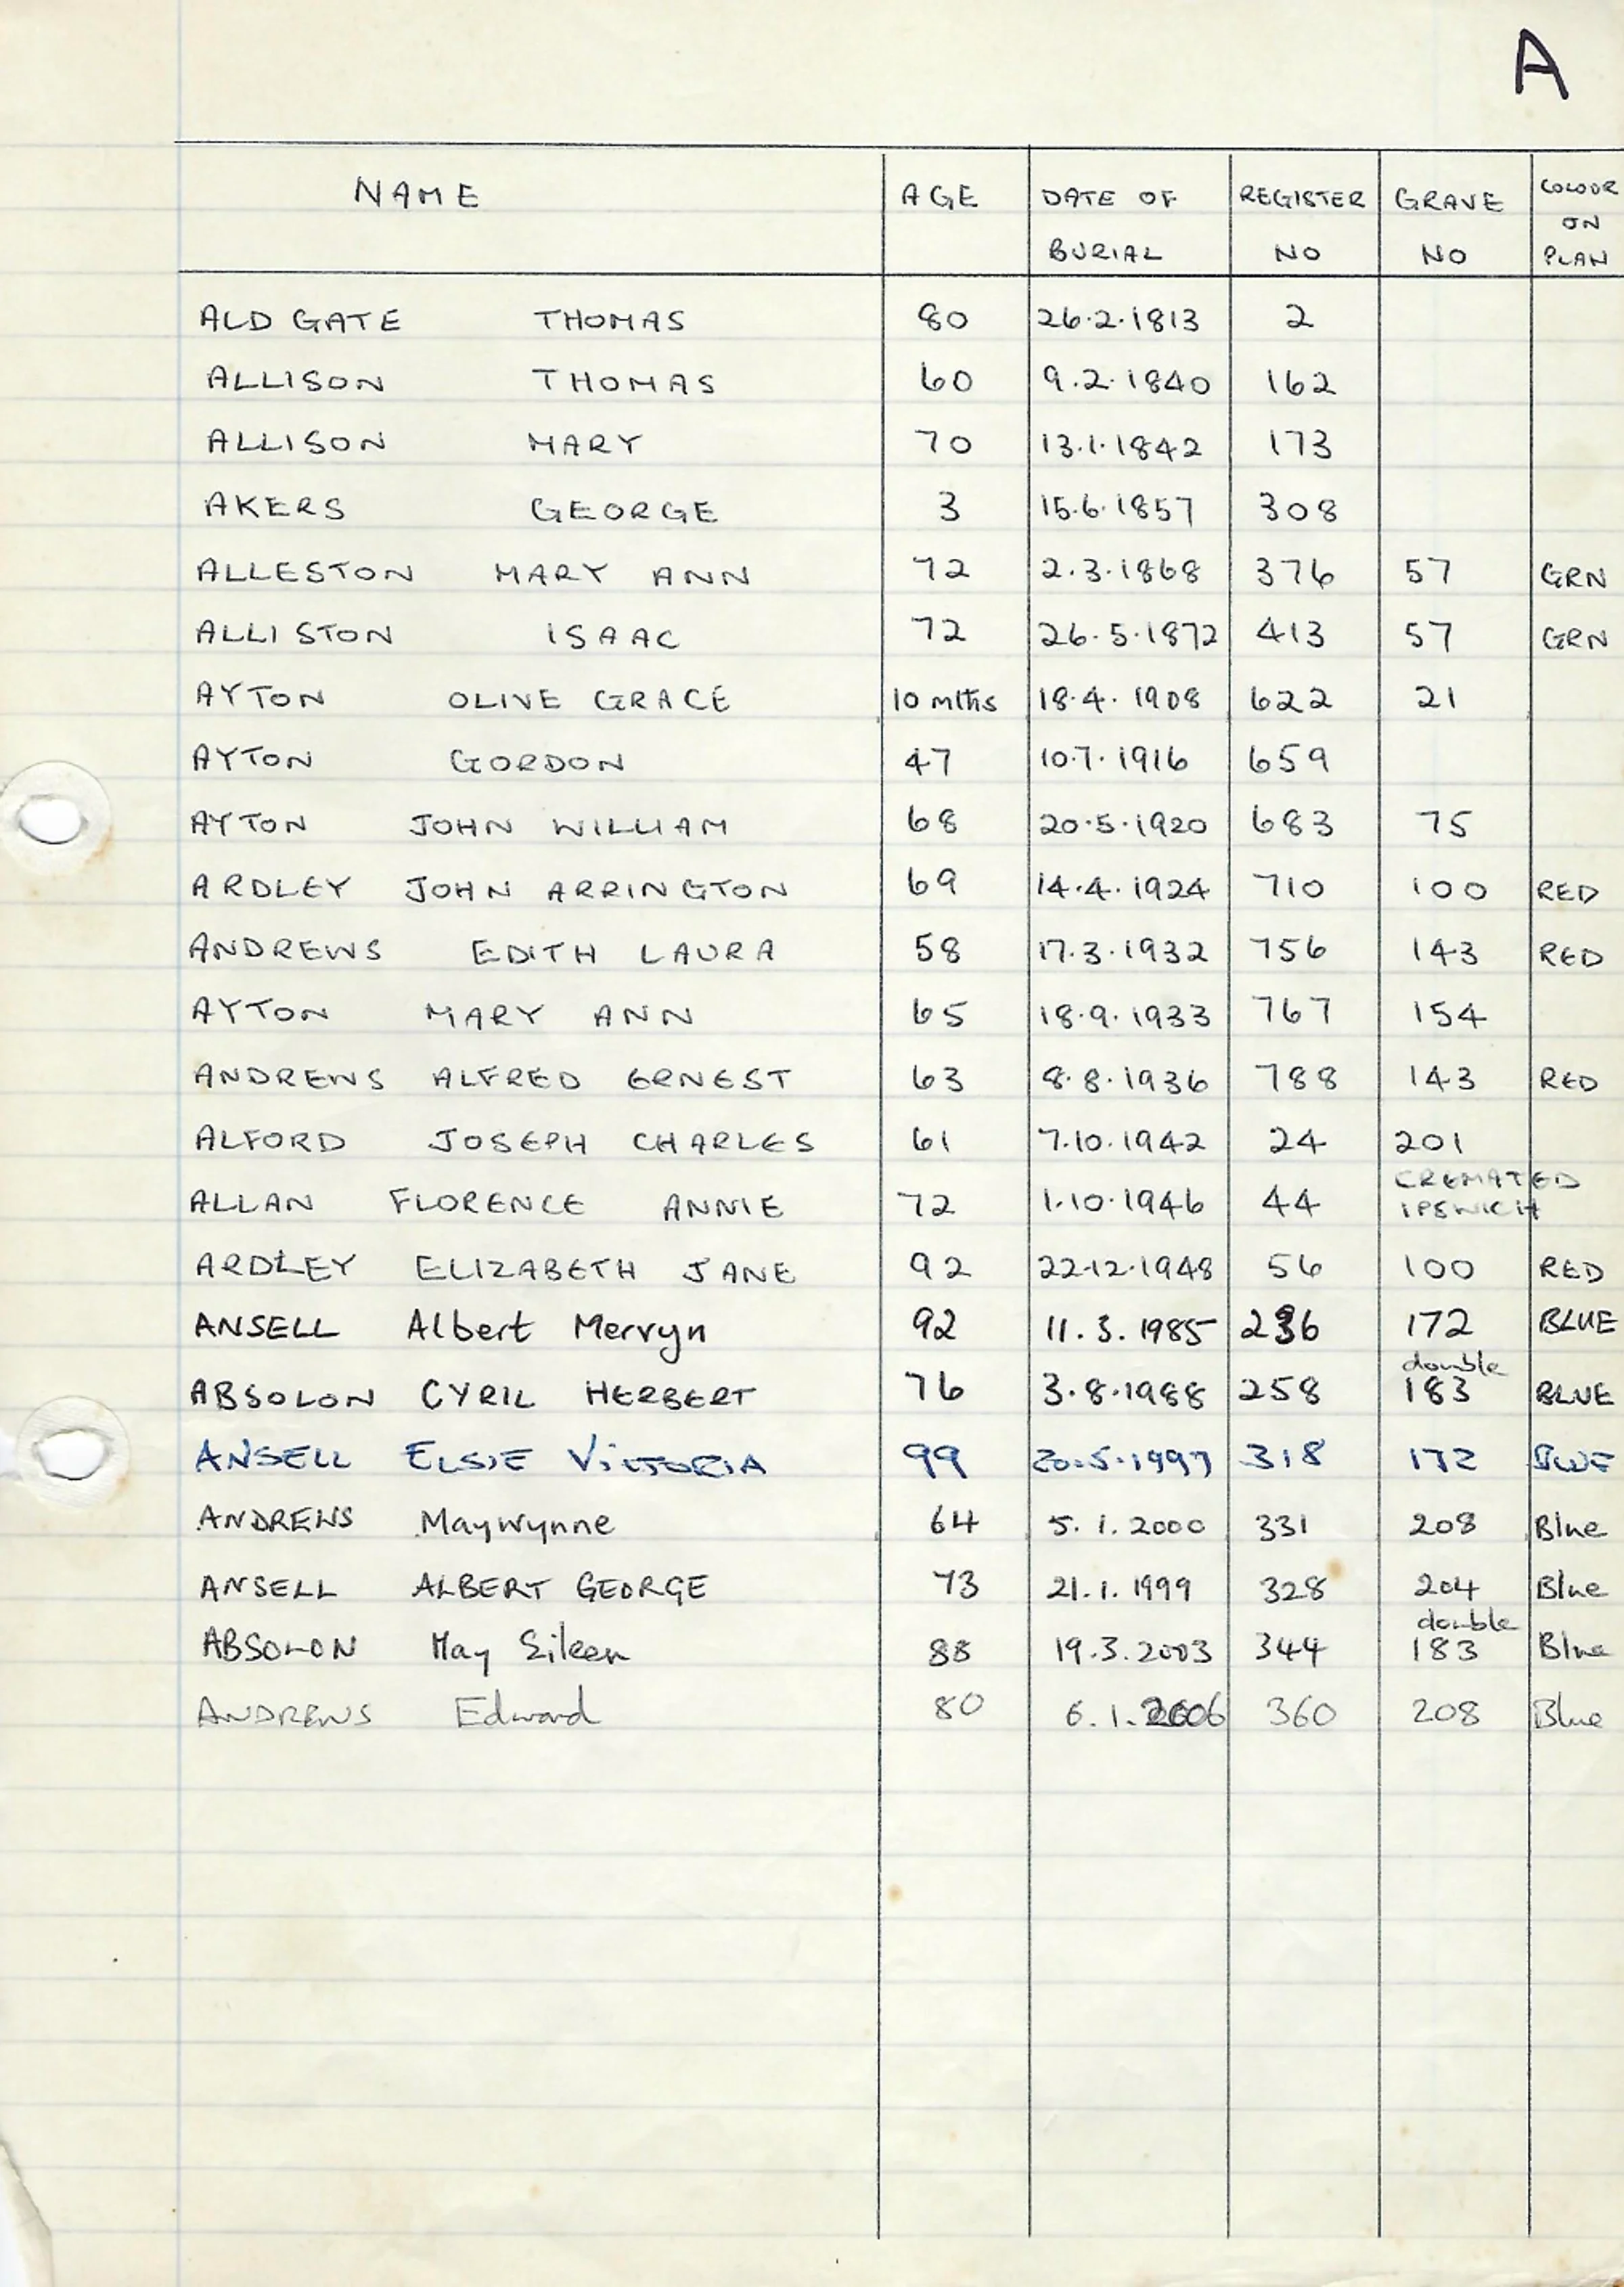 A
NAME AGE DATE OF BURIAL REGISTER NO GRAVE NO COLOUR ON PLAN
ALDGATE THOMAS 80 26.2.1813 2
ALLISON THOMAS 60 9.2.1840 162
ALLISON MARY 70 13.1.1842 173
AKERS GEORGE 3 15.6.1857 308
ALLESTON MARY ANN 72 2.3.1868 376 57 GRN
ALLISTON ISAAC 72 26.5.1872 413 57 GRN
AYTON OLIVE GRACE 10 mths 18.4.1908 622 21
AYTON GORDON 47 10.7.1916 659
AYTON JOHN WILLIAM 68 20.5.1920 683 75
ARDLEY JOHN ARRINGTON 69 14.4.1924 710 100 RED
ANDREWS EDITH LAURA 58 17.3.1932 756 143 RED
AYTON MARY ANN 65 18.9.1933 767 154
ANDREWS ALFRED ERNEST 63 8.8.1936 788 143 RED
ALFORD JOSEPH CHARLES 61 7.10.1942 24 201
ALLAN FLORENCE ANNIE 72 1.10.1946 44 CREMATED IPSWICH
ARDLEY ELIZABETH JANE 92 22.12.1948 56 100 RED
ANSELL Albert Mervyn 92 11.3.1985 236 172 BLUE
ABSOLON CYRIL HERBERT 76 3.8.1988 258 double 183 BLUE
ANSELL ELSIE VICTORIA 99 20.5.1997 318 172 BLUE
ANDREWS Maywynne 64 5.1.2000 331 208 Blue
ANSELL ALBERT GEORGE 73 21.1.1999 328 204 Blue
ABSOLON May Eileen 88 19.3.2003 344 double 183 Blue
ANDREWS Edward 80 6.1.2006 360 208 Blue